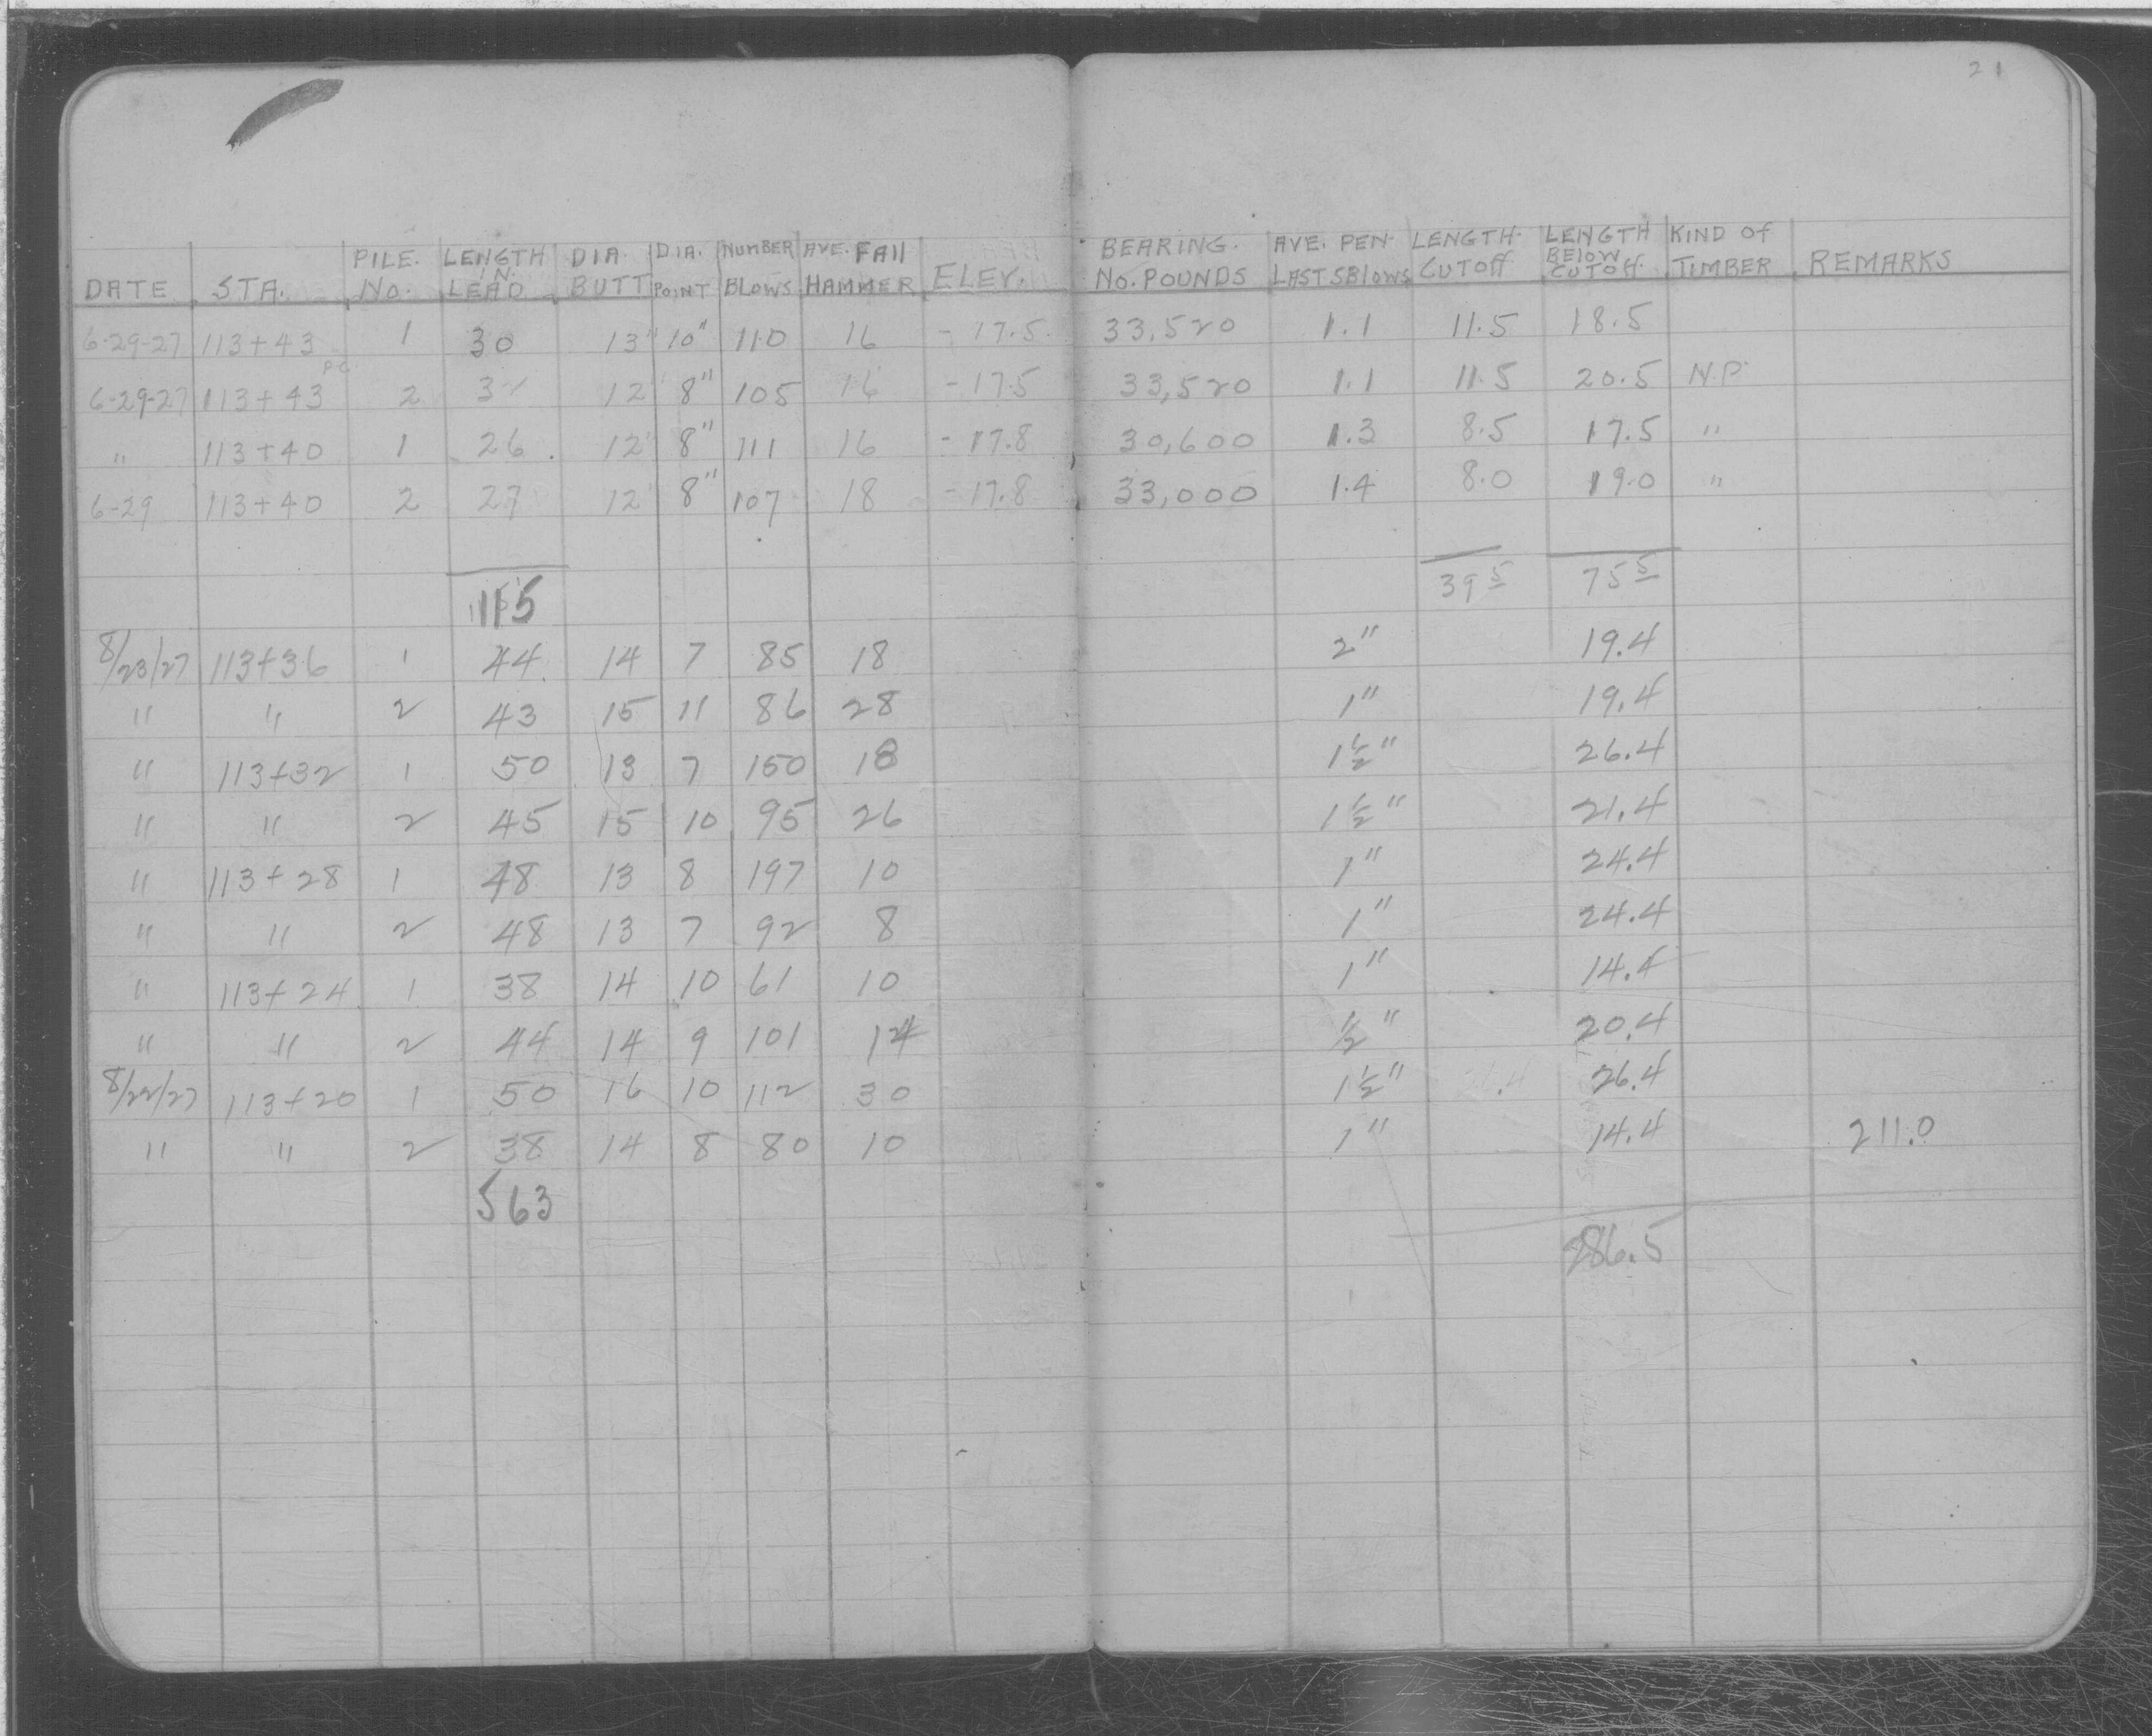 21
DATE STA. PILE. No. LENGTH IN LEAD DIA. BUTT DIA. POINT NUMBER BLOWS AVE. FAll HAMMER ELEV. BEARING. No. POUNDS AVE. PEN. LAST 5 Blows LENGTH CUTOff LENGTH BELOW CUTOff KIND Of TIMBER REMARKS
6-29-27 113+43 1 30 13" 10" 110 16 -17.5 33,520 1.1 11.5 18.5
6-29-27 113+43 2 32 12" 8" 105 16 -17.5 33,520 1.1 11.5 20.5 N.P.
" 113+40 1 26 12" 8" 111 16 -17.8 30,600 1.3 8.5 17.5 "
6-29 113+40 2 27 12" 8" 107 18 -17.8 33,000 1.4 8.0 19.0 "
115 39 5 75 5
8/23/27 113+36 1 44 14 7 85 18 2" 19.4
" " 2 43 15 11 86 28 1" 19.4
" 113+32 1 50 13 7 150 18 1½" 26.4
" " 2 45 15 10 95 26 1½" 21.4
" 113+28 1 48 13 8 197 10 1" 24.4
" " 2 48 13 7 92 8 1" 24.4
" 113+24 1 38 14 10 61 10 1" 14.4
" " 2 44 14 9 101 14 ½" 20.4
8/22/27 113+20 1 50 16 10 112 30 1½" 26.4
" " 2 38 14 8 80 10 1" 14.4 211.0
563
286.5